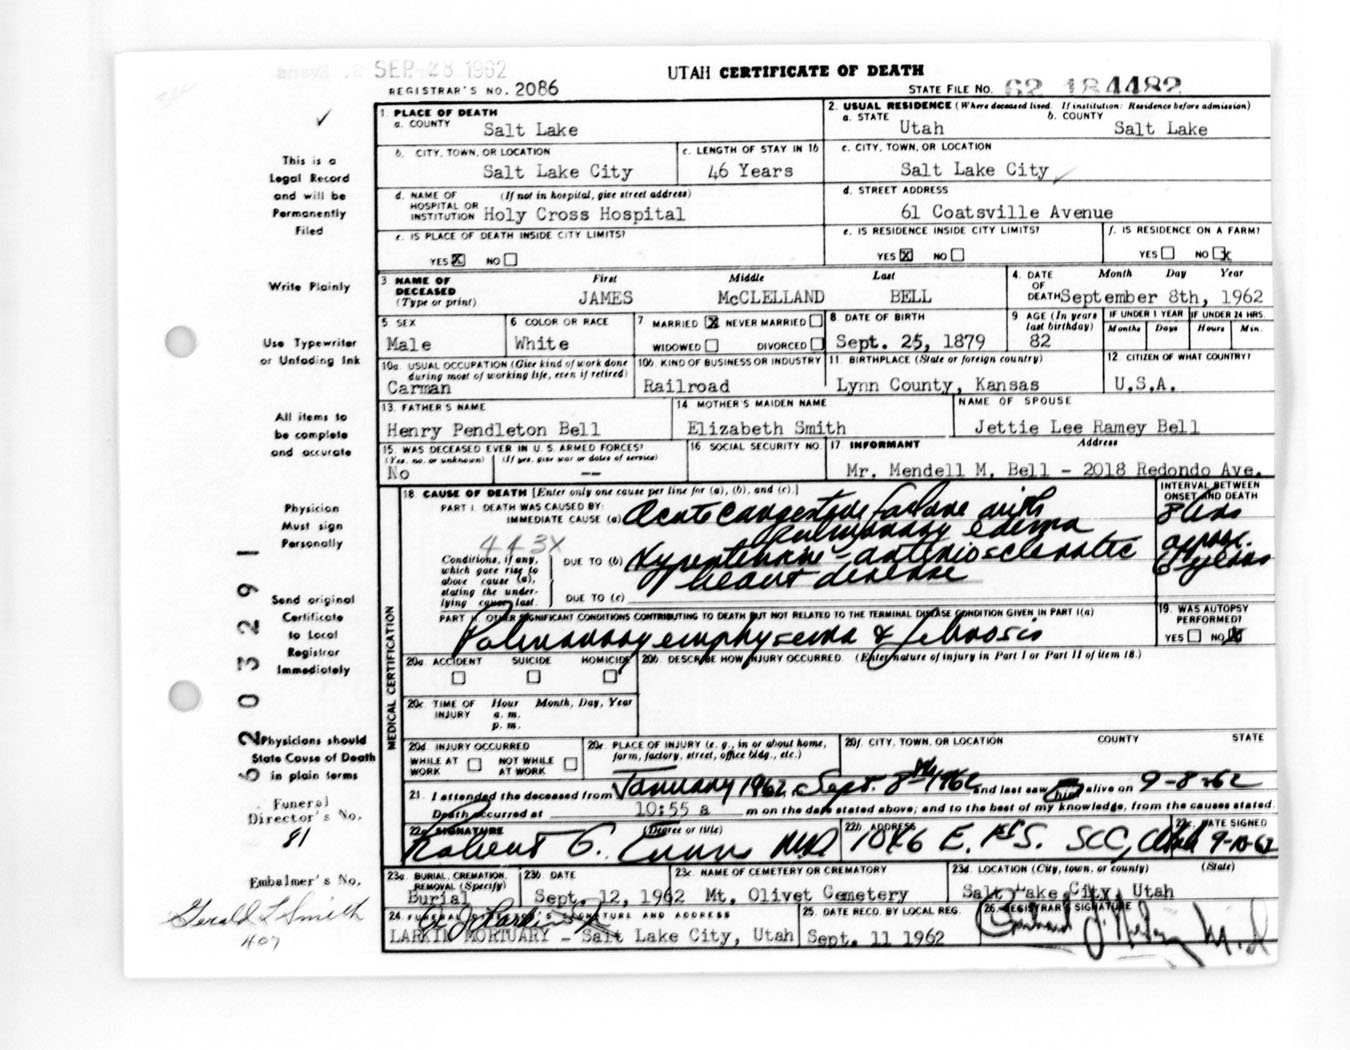 SEP 28 1962
UTAH CERTIFICATE OF DEATH
REGISTRAR'S NO. 2086
STATE FILE NO. 62 184482
This is a
Legal Record
and will be
Permanently
Filed
Write Plainly
Use Typewriter
or Unfading Ink
All items to
be complete
and accurate
Physician
Must sign
Personally
Send original
Certificate
to Local
Registrar
Immediately
Physicians should
State Cause of Death
in plain terms
Funeral
Director's No.
81
Embalmer's No.
Gerald L Smith
407
52 03291
1. PLACE OF DEATH
a. COUNTY Salt Lake
2. USUAL RESIDENCE (Where deceased lived. If institution: Residence before admission)
a. STATE Utah b. COUNTY Salt Lake
b. CITY, TOWN, OR LOCATION Salt Lake City
c. LENGTH OF STAY IN 1b 46 Years
c. CITY, TOWN, OR LOCATION Salt Lake City
d. NAME OF HOSPITAL OR INSTITUTION (If not in hospital, give street address) Holy Cross Hospital
d. STREET ADDRESS 61 Coatsville Avenue
e. IS PLACE OF DEATH INSIDE CITY LIMITS?
YES X NO
e. IS RESIDENCE INSIDE CITY LIMITS?
YES X NO
f. IS RESIDENCE ON A FARM?
YES NO X
3. NAME OF DECEASED (Type or print) First Middle Last
JAMES McCLELLAND BELL
4. DATE OF DEATH Month Day Year
September 8th, 1962
5 SEX Male
6 COLOR OR RACE White
7 MARRIED X NEVER MARRIED
WIDOWED DIVORCED
8 DATE OF BIRTH Sept. 25, 1879
9 AGE (In years last birthday) 82
IF UNDER 1 YEAR Months Days
IF UNDER 24 HRS. Hours Min.
10a. USUAL OCCUPATION (Give kind of work done during most of working life, even if retired) Carman
10b. KIND OF BUSINESS OR INDUSTRY Railroad
11. BIRTHPLACE (State or foreign country) Lynn County, Kansas
12 CITIZEN OF WHAT COUNTRY? U.S.A.
13. FATHER'S NAME Henry Pendleton Bell
14 MOTHER'S MAIDEN NAME Elizabeth Smith
NAME OF SPOUSE Jettie Lee Ramey Bell
15. WAS DECEASED EVER IN U. S. ARMED FORCES?
(Yes, no, or unknown) (If yes, give war or dates of service)
No --
16 SOCIAL SECURITY NO.
17 INFORMANT Address
Mr. Mendell M. Bell - 2018 Redondo Ave.
MEDICAL CERTIFICATION
18. CAUSE OF DEATH [Enter only one cause per line for (a), (b), and (c).]
INTERVAL BETWEEN ONSET AND DEATH
PART I. DEATH WAS CAUSED BY:
IMMEDIATE CAUSE (a) Acute congestive failure with
pulmonary edema
443X
Conditions, if any, which gave rise to above cause (a), stating the under-lying cause last.
DUE TO (b) Hypertensive - arteriosclerotic
heart disease
approx.
years
DUE TO (c)
PART II. OTHER SIGNIFICANT CONDITIONS CONTRIBUTING TO DEATH BUT NOT RELATED TO THE TERMINAL DISEASE CONDITION GIVEN IN PART I(a)
Pulmonary emphysema & fibrosis
19. WAS AUTOPSY PERFORMED?
YES NO X
20a. ACCIDENT SUICIDE HOMICIDE
20b. DESCRIBE HOW INJURY OCCURRED. (Enter nature of injury in Part I or Part II of item 18.)
20c. TIME OF INJURY Hour Month, Day, Year
a. m.
p. m.
20d. INJURY OCCURRED
WHILE AT WORK NOT WHILE AT WORK
20e. PLACE OF INJURY (e. g., in or about home, farm, factory, street, office bldg., etc.)
20f. CITY, TOWN, OR LOCATION COUNTY STATE
21. I attended the deceased from January 1962, Sept. 8th 1962 and last saw him alive on 9-8-62
Death occurred at 10:55 a m on the date stated above; and to the best of my knowledge, from the causes stated.
22a. SIGNATURE (Degree or title)
Robert G. Evans MD
22b. ADDRESS E. 1st S. SLC, Utah
22c. DATE SIGNED 9-10-62
23a. BURIAL, CREMATION, REMOVAL (Specify) Burial
23b DATE Sept. 12, 1962
23c. NAME OF CEMETERY OR CREMATORY Mt. Olivet Cemetery
23d. LOCATION (City, town, or county) (State)
Salt Lake City, Utah
24. FUNERAL DIRECTOR'S SIGNATURE AND ADDRESS
LARKIN MORTUARY - Salt Lake City, Utah
25. DATE RECD. BY LOCAL REG. Sept. 11 1962
26. REGISTRAR'S SIGNATURE